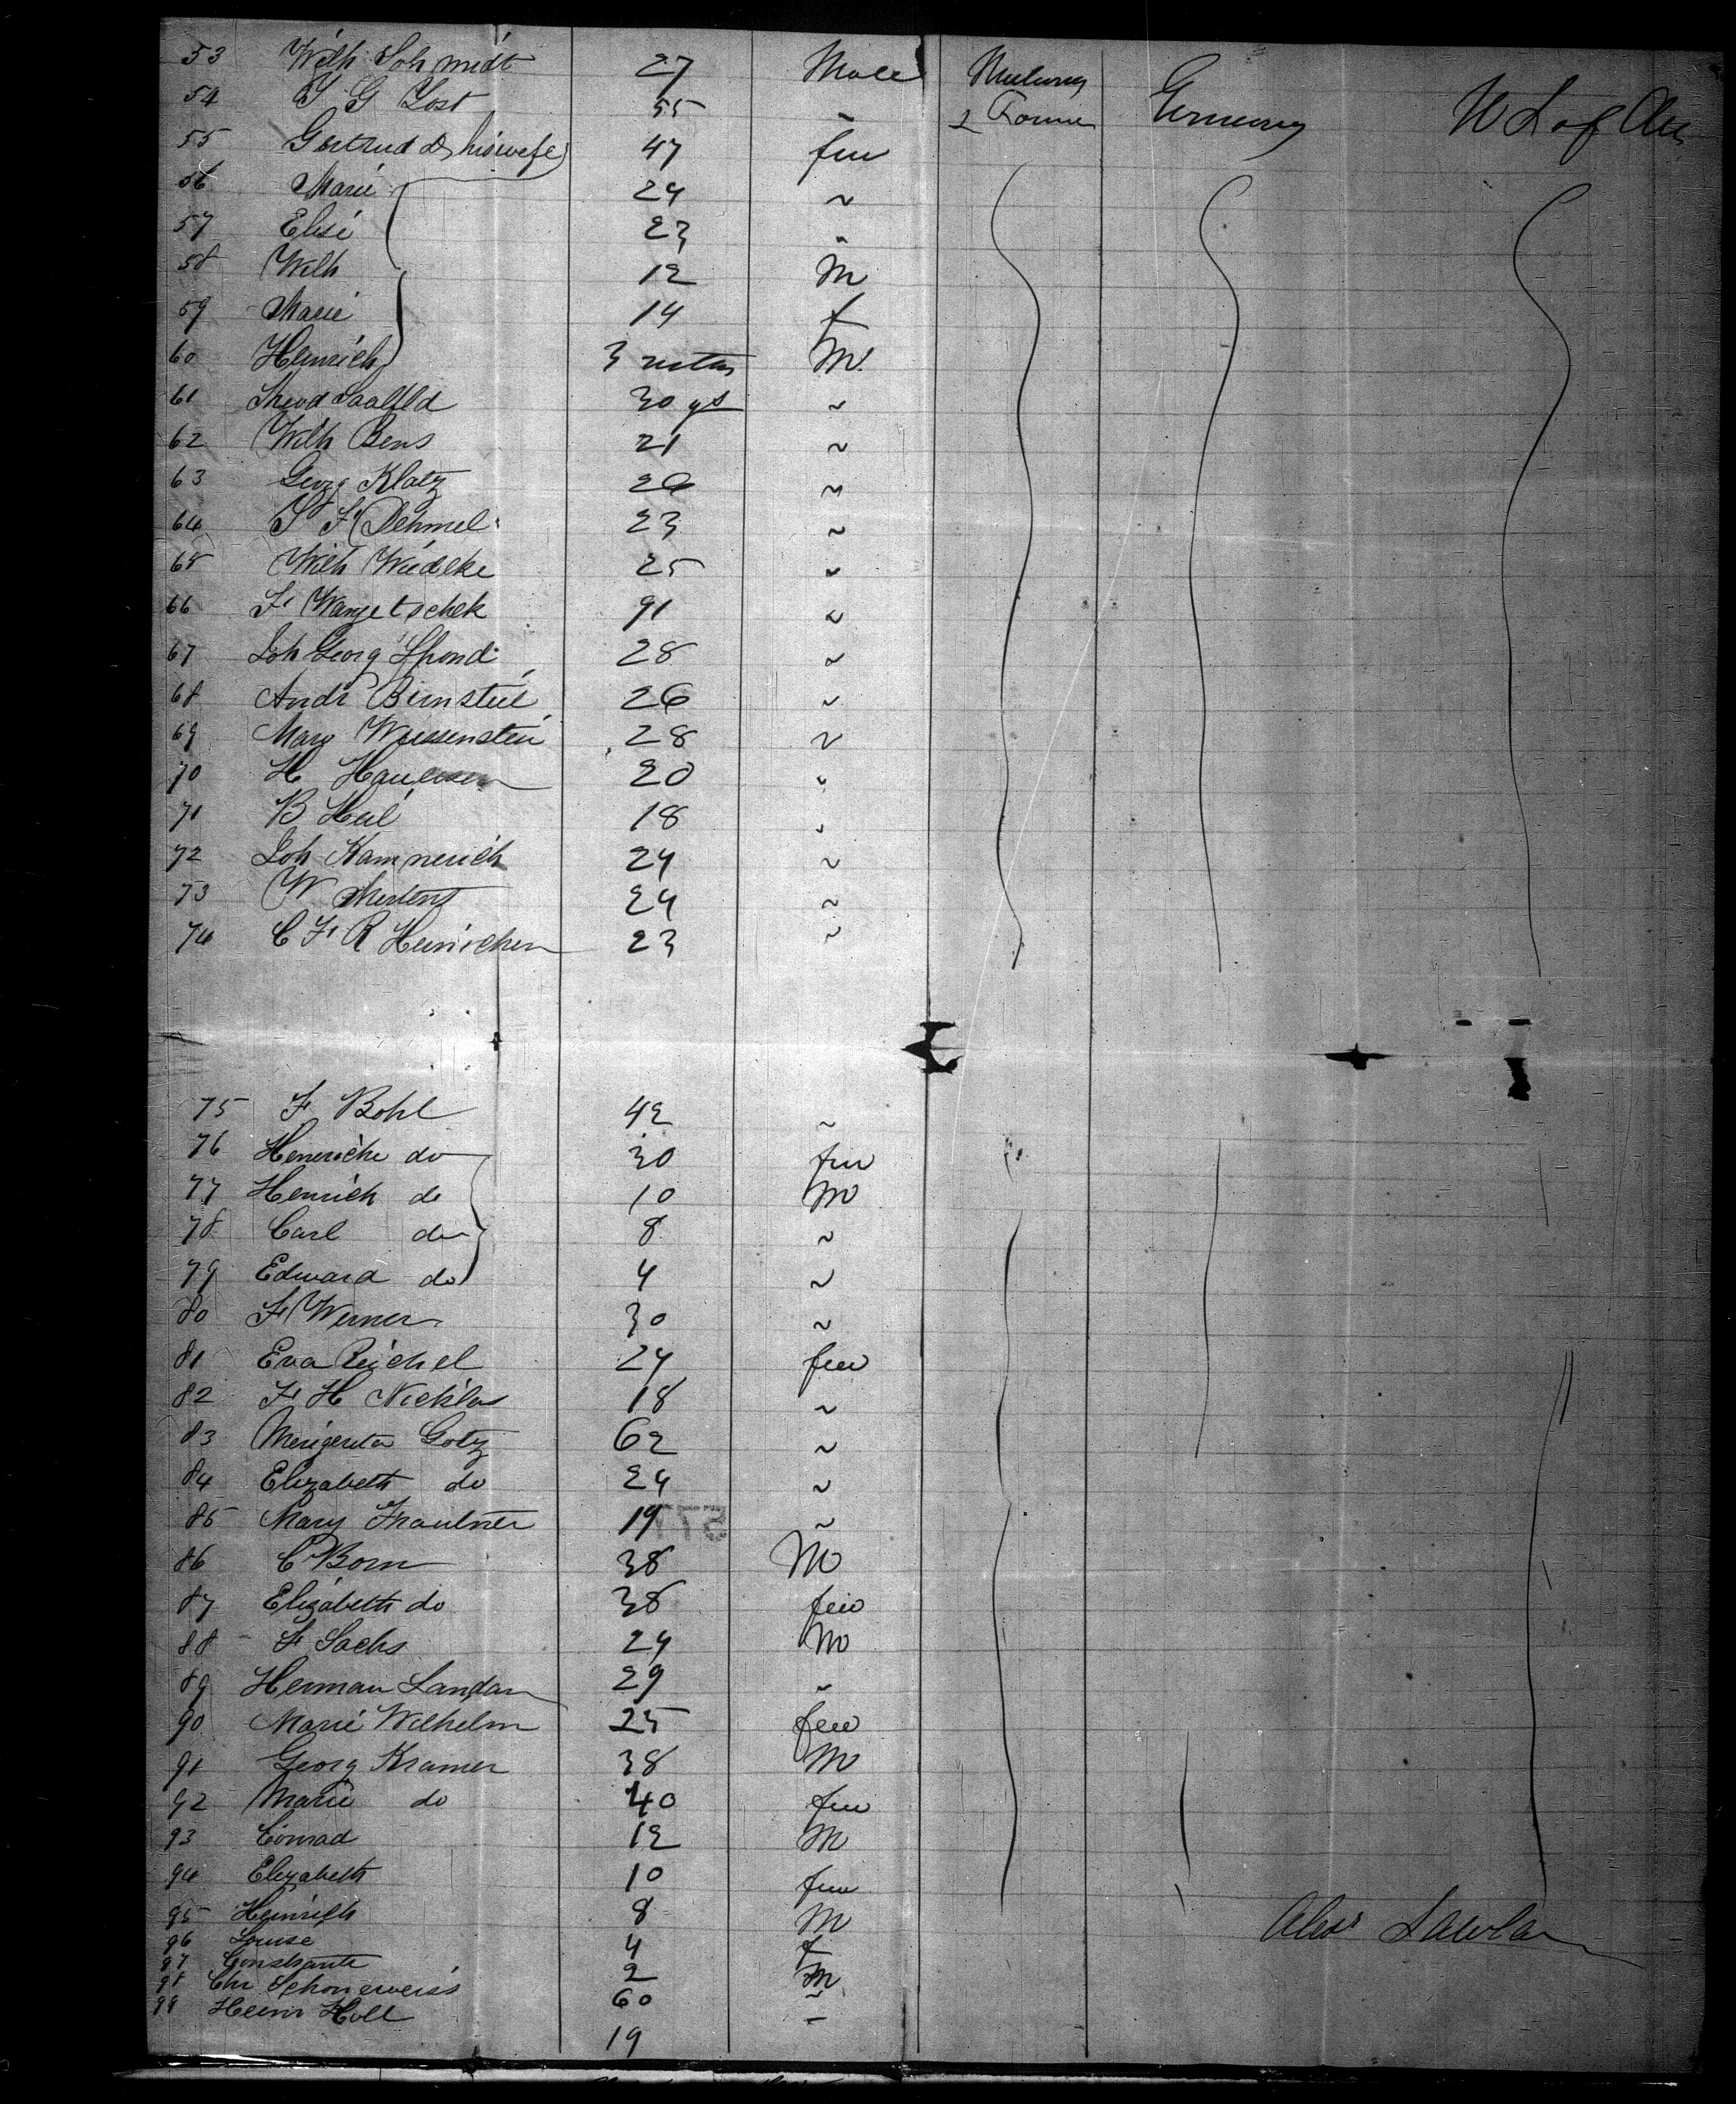 53 Wilh Schmidt 27 Male Germany U S of Am
54 J G Yost 55 " & Farmer
55 Gertrud do his wife 47 fem
56 Marie 24 "
57 Elise 23 "
58 Wilh 12 M
59 Marie 14 f
60 Heinrich 3 mths M
61 Theod Saalfld 30 ys "
62 Wilh Bens 21 "
63 Georg Klatz 26 "
64 J F Dehmel 23 "
65 Wilh Wiedeke 25 "
66 F Wanjetschek 91 "
67 Joh Georg 28 "
68 Andr Birnstiel 26 "
69 Marg Weissenstein 28 "
70 H 20 "
71 B Heil 18 "
72 Joh Kammerich 24 "
73 W Mertens 24 "
74 C F R Heinichen 23 "
75 F Bohl 42 "
76 Heneriche do 30 fem
77 Henrich do 10 M
78 Carl do 8 "
79 Edward do 4 "
80 F Werner 30 "
81 Eva Reichel 24 fem
82 F H Nicklas 18 "
83 Merigereta Gotz 62 "
84 Elizabeth do 24 "
85 Mary Trautner 19 "
86 C Born 38 M
87 Elizabeth do 38 fem
88 F Sachs 24 M
89 Herman Landau 29 "
90 Marie Wilhelm 25 fem
91 Georg Kramer 38 M
92 Marie do 40 fem
93 Conrad 12 M
94 Elizabeth 10 fem
95 Heinrich 8 M
96 Louise 4 f
97 Constante 2 M
98 Chr Schonerweiss 60 "
99 Heinr Holl 19 "